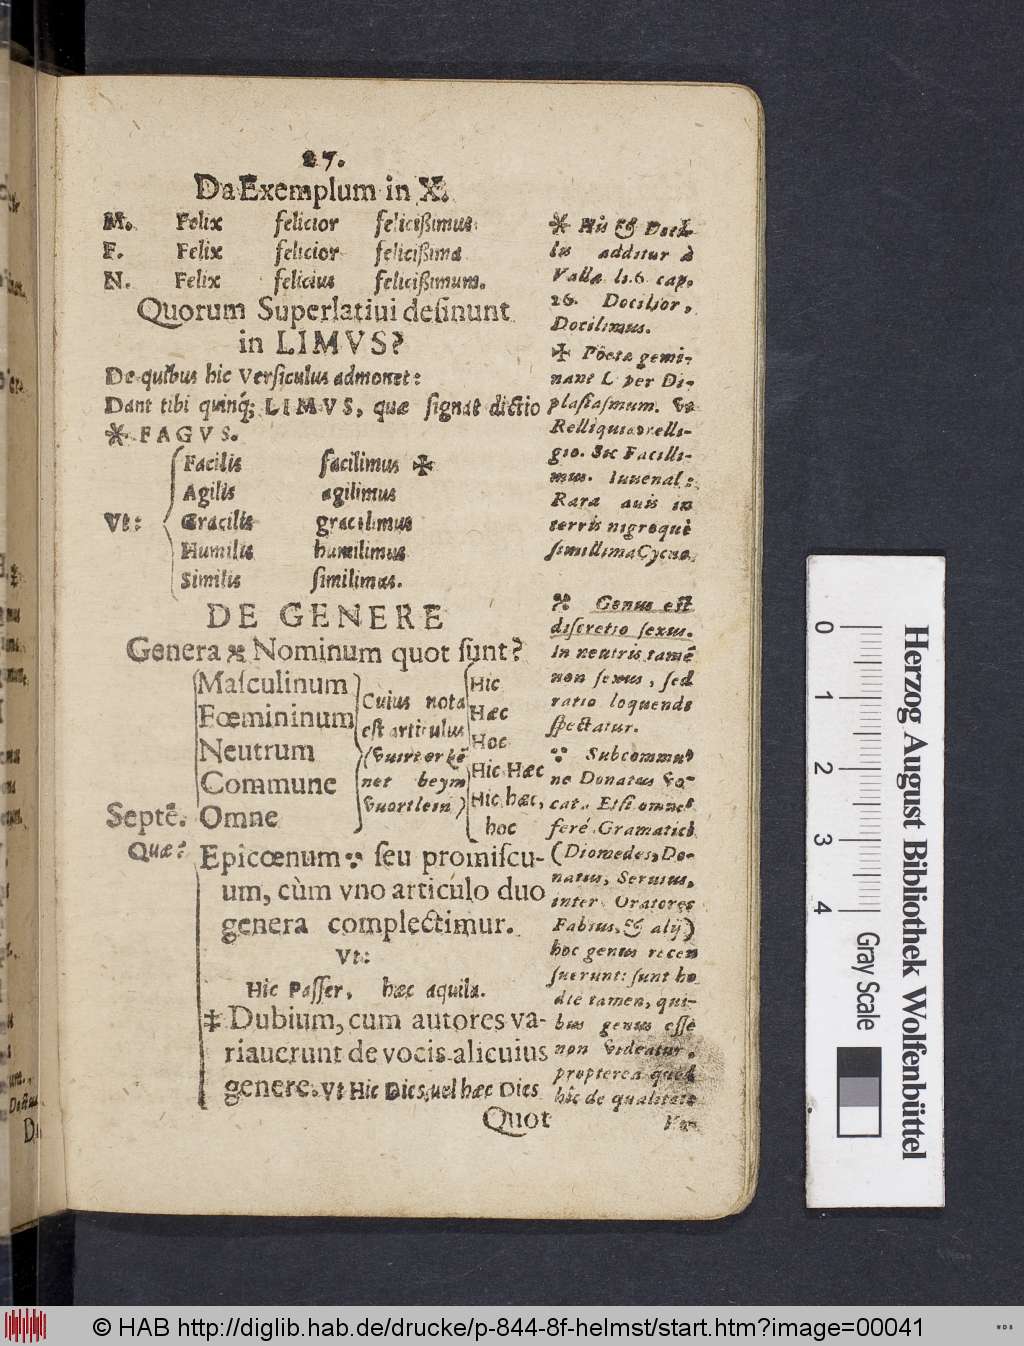 27.
Da Exemplum in X.
M. Felix felicior felicißimus
F. Felix felicior felicißima
N. Felix felicius felicißimum.
Quorum Superlatiui desinunt
in LIMVS?
De quibus hic Versiculus admonet:
Dant tibi quinq; LIMVS, quæ signat dictio
* FAGVS.
Vt:
Facilis facilimus ✠
Agilis agilimus
Gracilis gracilimus
Humilis humilimus
Similis similimus.
DE GENERE
Genera Nominum quot sunt?
Septē.
Quæ?
Masculinum
Fœmininum
Neutrum
Commune
Omne
Cuius nota
est articulus
net beym
Hic
Hæc
Hoc
Hic Hæc
Hic hæc,
hoc
Epicœnum seu promiscu-
um, cùm vno articulo duo
genera complectimur.
Vt:
Hic Passer, hæc aquila.
‡ Dubium, cum autores va-
riauerunt de vocis alicuius
genere. Vt Hic Dies, uel hæc Dies
Quot
* His & Doci-
lis additur à
Valla li. 6. cap.
26. Docilior,
Docilimus.
✠ Pöetæ gemi-
nant L per Di-
plasiasmum. Vt
Relliquiæ, relli-
gio. Sic Facilli-
mus. Iuuenal:
Rara auis in
terris nigroquè
simillima Cycno.
Genus est
discretio sexus.
In neutris tamē
non sexus, sed
ratio loquendi
spectatur.
Subcommu
ne Donatus vo-
cat. Etsi omnes
feré Gramatici
(Diomedes, Do-
natus, Seruius,
inter Oratores
Fabius, & alij)
hoc genus recen
suerunt: sunt ho
die tamen, qui-
bus genus esse
non videatur,
propterea quod
hîc de qualitate